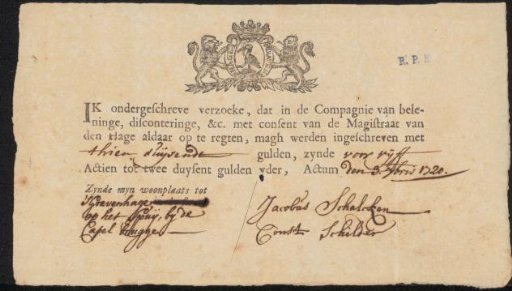 R. P. K
IK ondergeſchreve verzoeke, dat in de Compagnie van bele-
ninge, diſconteringe, &c. met conſent van de Magiſtraat van
den Hage aldaar op te regten, magh werden ingeſchreven met
thien duijsende gulden, zynde voor vijff
Actien tot twee duyſent gulden yder, Actum den 5. 1720.
Zynde myn woonplaats tot
's Gravenhage
op het Spuij, bij de
Capel brugge
Jacobus Schalcken
Const Schilder